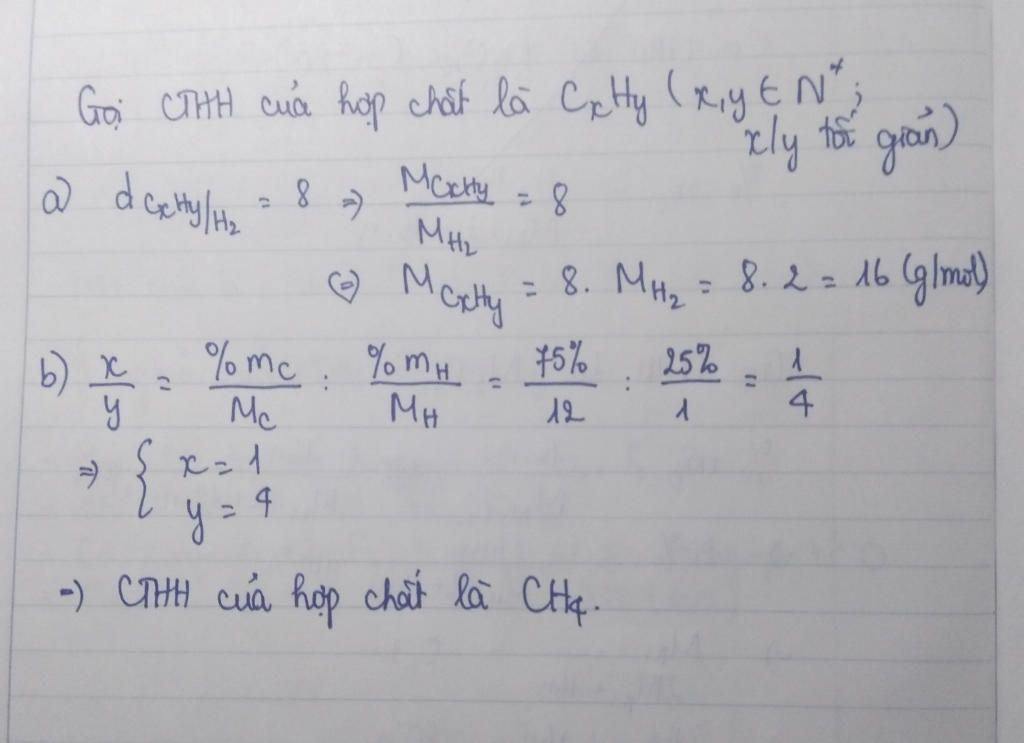 Gọi CTHH của hợp chất là CxHy (x,y ∈ N*;
x/y tối giản)
a) d CxHy/H2 = 8 => MCxHy/MH2 = 8
<=> MCxHy = 8. MH2 = 8. 2 = 16 (g/mol)
b) x/y = %mC/MC : %mH/MH = 75%/12 : 25%/1 = 1/4
=> { x = 1
y = 4
=> CTHH của hợp chất là CH4.